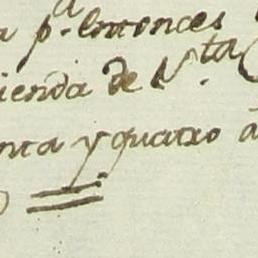 pª. entonces
ienda de Nᵗᵃ.
nta y quatro a